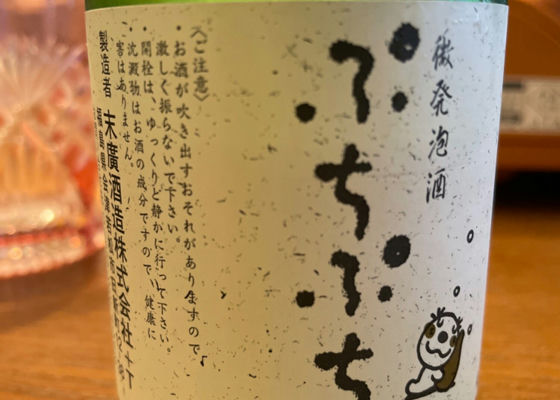 微発泡酒
ぷちぷち
〈ご注意〉
・お酒が吹き出すおそれがありますので、
激しく振らないで下さい。
・開栓は、ゆっくりと静かに行って下さい。
・沈澱物はお酒の成分ですので、健康に
害はありません。
製造者 末廣酒造株式会社
福島県会津若松市